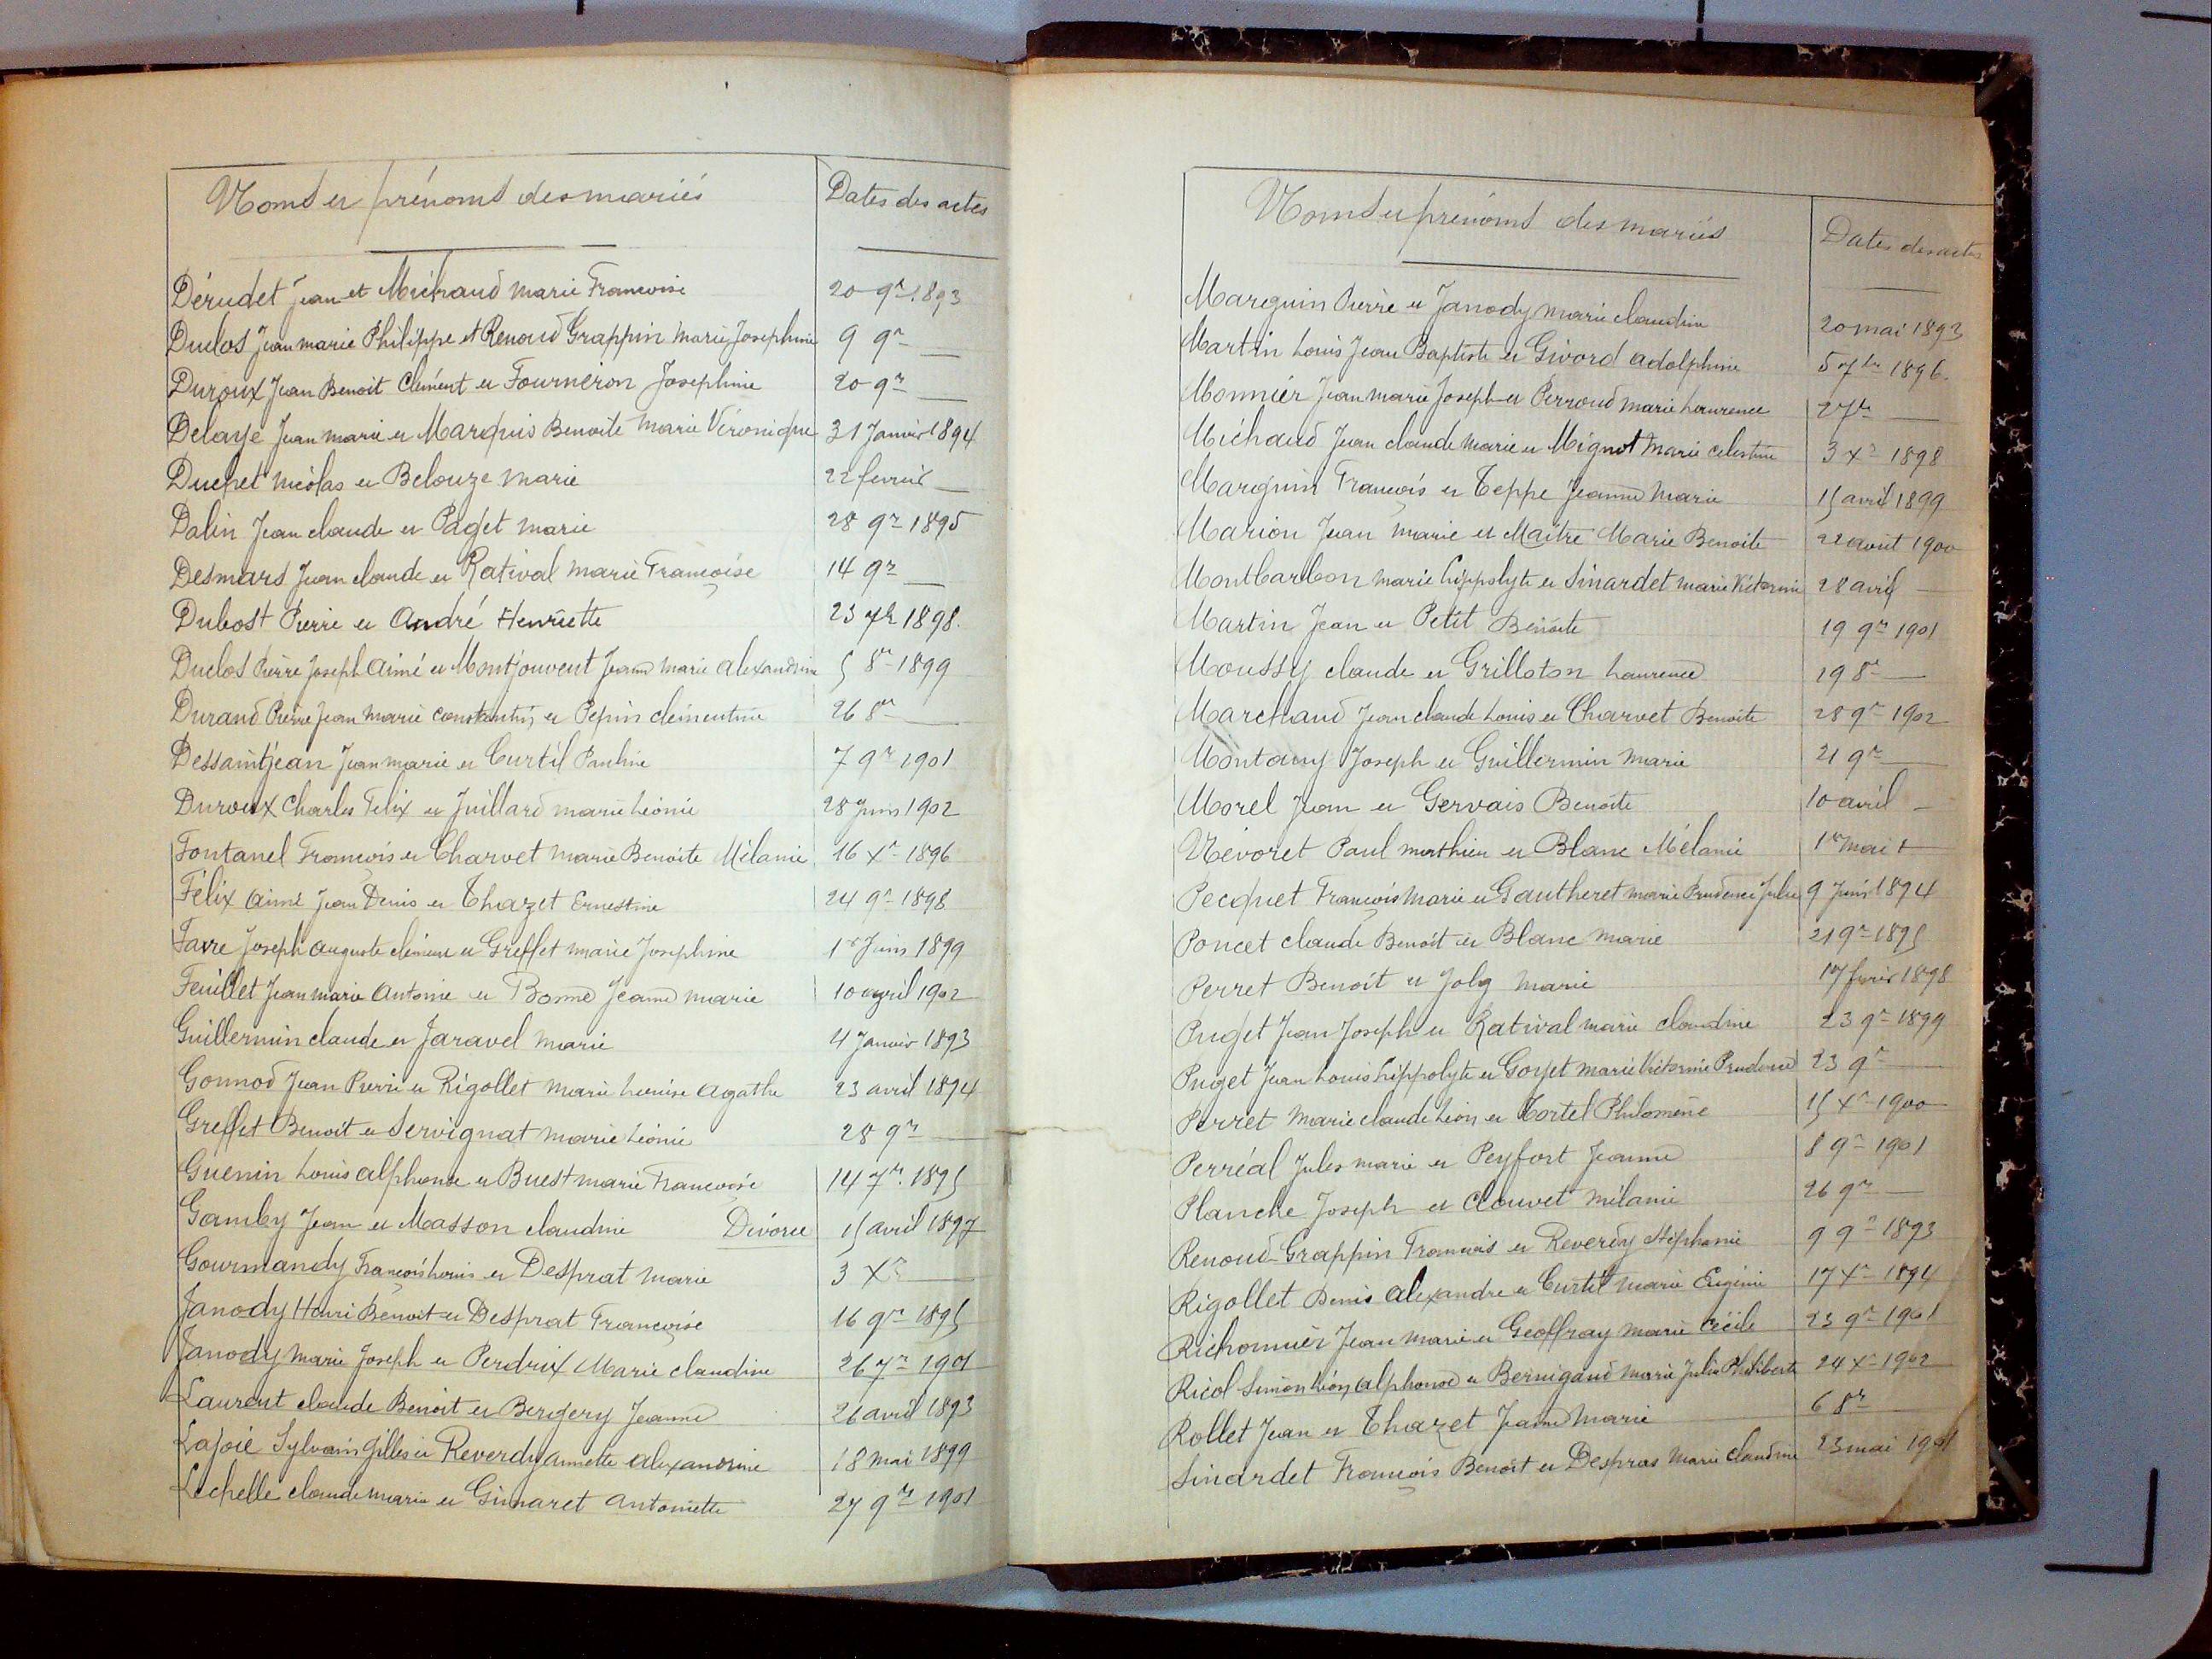 Noms et prénoms des mariés
Dates des actes
Dérudet Jean et Michaud Marie Francoise 20 9re 1893
Duclos Jean marie Philippe et Renoud Grappin Marie Josephine 9 9re —
Duroux Jean Benoit Clément et Fourneron Josephine 20 9re —
Delaye Jean Marie et Marquis Benoite Marie Véronique 31 Janvier 1894
Duchet Nicolas et Belouze Marie 22 fevrier —
Dalin Jean claude et Paget Marie 28 9re 1895
Desmars Jean claude et Rativat Marie Françoise 14 9re —
Dubost Pierre et André Henriette 23 7re 1898.
Duclos Pierre Joseph Aimé et Montjouvent Jeanne Marie Alexandrine 5 8re 1899
Durand Pierre Jean Marie Constantin et Pepin clémentine 26 8re —
Dessaintjean Jean Marie et Curtil Pauline 7 9re 1901
Duroux Charles Félix et Juillard marie Léonie 28 Juin 1902
Fontanel François et Charvet Marie Benoite Mélanie 16 Xre 1896
Félix Aimé Jean Denis et Chazet Ernestine 24 9re 1898
Favre Joseph Auguste clément et Greffet Marie Josephine 1er Juin 1899
Feuillet Jean marie Antoine et Bonne Jeanne Marie 10 avril 1902
Guillermin claude et Jaravel Marie 4 Janvier 1893
Gonnod Jean Pierre et Rigollet Marie Louise Agathe 23 avril 1894
Greffet Benoit et Servignat Marie Léonie 28 9re —
Guenin Louis Alphonse et Buest marie Francoise 14 7re 1895
Gamby Jean et Masson claudine Divorce 15 avril 1897
Gourmandy François Louis et Desprat Marie 3 Xre —
Janody Henri Benoit et Desprat Françoise 16 9re 1895
Janody Marie Joseph et Perdrix Marie claudine 26 7re 1901
Laurent claude Benoit et Bergery Jeanne 26 avril 1893
Lajoie Sylvain Gilles et Reverdy Annette Alexandrine 18 mai 1899
Lechelle claude marie et Gimaret Antoinette 27 9re 1901
Noms et prénoms des mariés
Dates des actes
Marguin Pierre et Janody Marie claudine 20 mai 1893
Martin Louis Jean Baptiste et Givord Adolphine 5 7bre 1896.
Monnier Jean Marie Joseph et Perroud Marie Laurence 2 7bre —
Michaud Jean claude Marie et Mignot Marie Celestine 3 Xre 1898
Marguin François et Teppe Jeanne Marie 15 avril 1899
Marion Jean Marie et Maitre Marie Benoite 22 août 1900
Montbarbon Marie Hippolyte et Sinardet Marie Victorine 28 avril —
Martin Jean et Petit Benoite 19 9re 1901
Moussy claude et Grilloton Laurence 19 8re —
Marchand Jean claude Louis et Charvet Benoite 28 9re 1902
Montany Joseph et Guillermin Marie 21 9re —
Morel Jean et Gervais Benoite 10 avril —
Névoret Paul Mathieu et Blanc Mélanie 1er Mai —
Pecquet François Marie et Gautheret Marie Prudence Julie 9 Juin 1894
Poncet claude Benoit et Blanc Marie 21 9re 1895
Perret Benoit et Joly Marie 17 fevrier 1898
Puget Jean Joseph et Rativat Marie claudine 23 9re 1899
Puget Jean Louis Hippolyte et Goyet Marie Victorine Prudence 23 9re —
Perret Marie claude Léon et Tortel Philomène 15 Xre 1900
Perréal Jules Marie et Peyfort Jeanne 8 9re 1901
Planche Joseph et Clouvet Mélanie 26 9re —
Renoud-Grappin François et Reverdy Stéphanie 9 9re 1893
Rigollet Denis Alexandre et Curtil Marie Eugénie 17 Xre 1894
Richonnier Jean Marie et Geoffray Marie Cécile 23 9re 1901
Ricol Simon Léon Alphonse et Bernigaud Marie Julie Philiberte 24 Xre 1902
Rollet Jean et Chazet Jeanne Marie 6 8re —
Sinardet François Benoit et Despras Marie Claudine 23 mai 1901